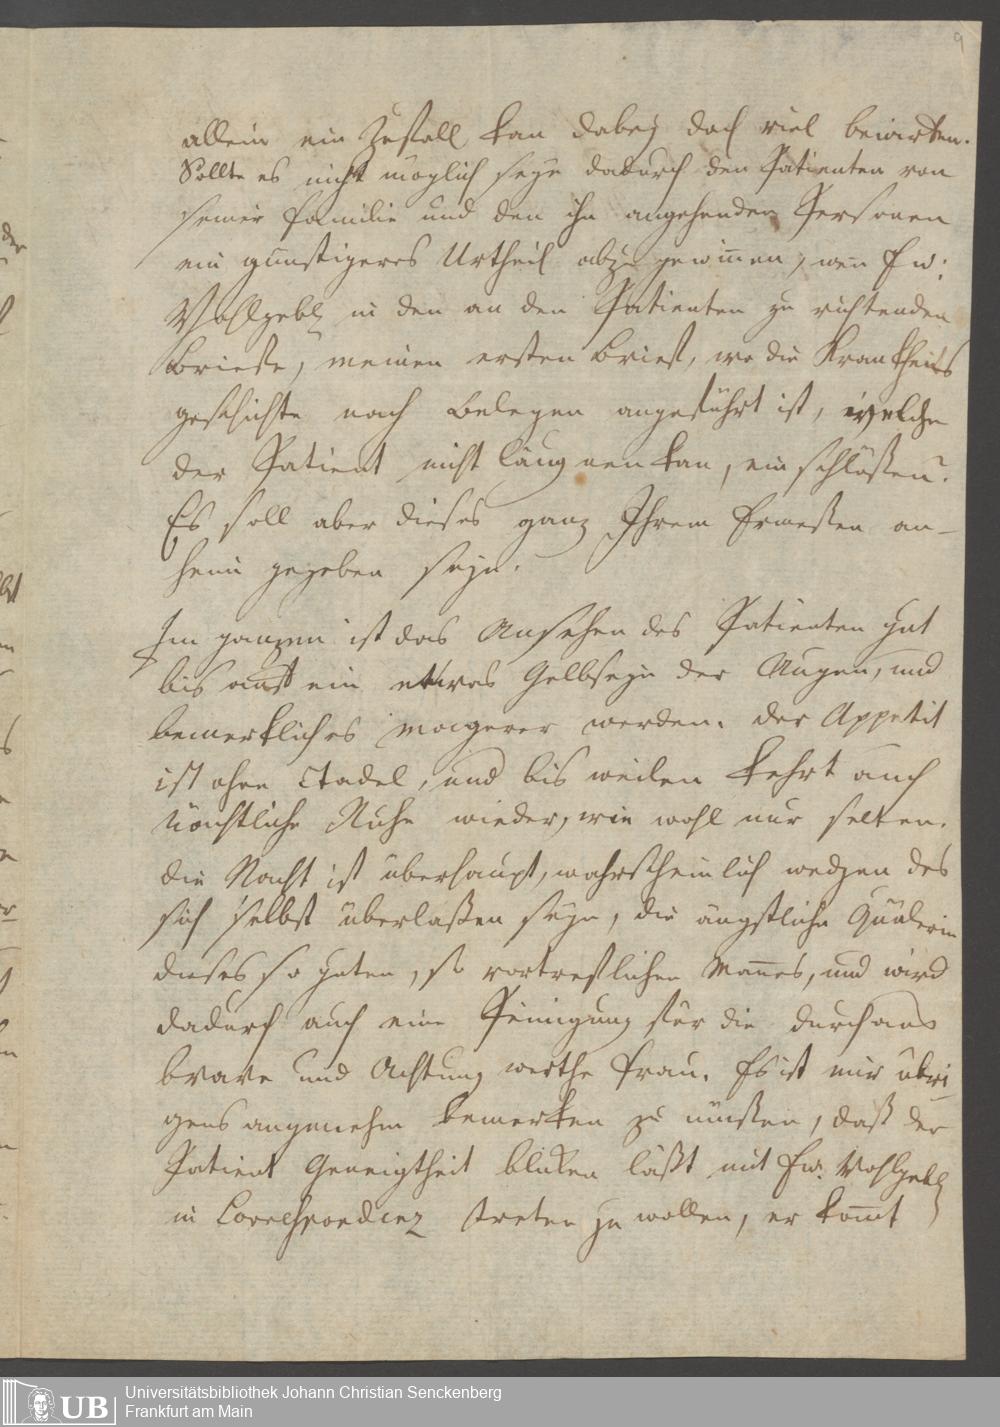 9
allein ein Zufall kan dabey doch viel bewirken.
Sollte es nicht möglich seyn dadurch den Patienten von
seiner Familie und den ihn angehenden Personen
ein günstigeres Urtheil abzugewinnen, wenn Ew:
Wohlgebl in den an den Patienten zu richtenden
Briefe, meinen ersten Brief, wo die Krankheits
geschichte nach Belegen angeführt ist, welche
der Patient nicht läugnen kan, einschlößen?
Es soll aber dieses ganz Ihrem Ermeßen an-
heim gegeben seyn.
Im ganzen ist das Ansehen des Patienten gut
bis auf ein etwas Gelbseyn der Augen, und
bemerkliches magerer werden. Der Appetit
ist ohne Tadel, und bisweilen kehrt auch
nächtliche Ruhe wieder, wie wohl nur selten.
die Nacht ist überhaupt, wahrscheinlich wegen des
sich selbst überlaßen seyn, die ängstliche Quälerin
dieses so guten, so vortreflichen Mannes, und wird
dadurch auch eine Peinigung für die durchaus
brave und Achtung werthe Frau. Es ist mir übri
gens angenehm bemerken zu müßen, daß der
Patient Geneigtheit blicken läßt mit Ew. Wohlgebl
in Correspondenz treten zu wollen, er kommt
UB
Universitätsbibliothek Johann Christian Senckenberg
Frankfurt am Main